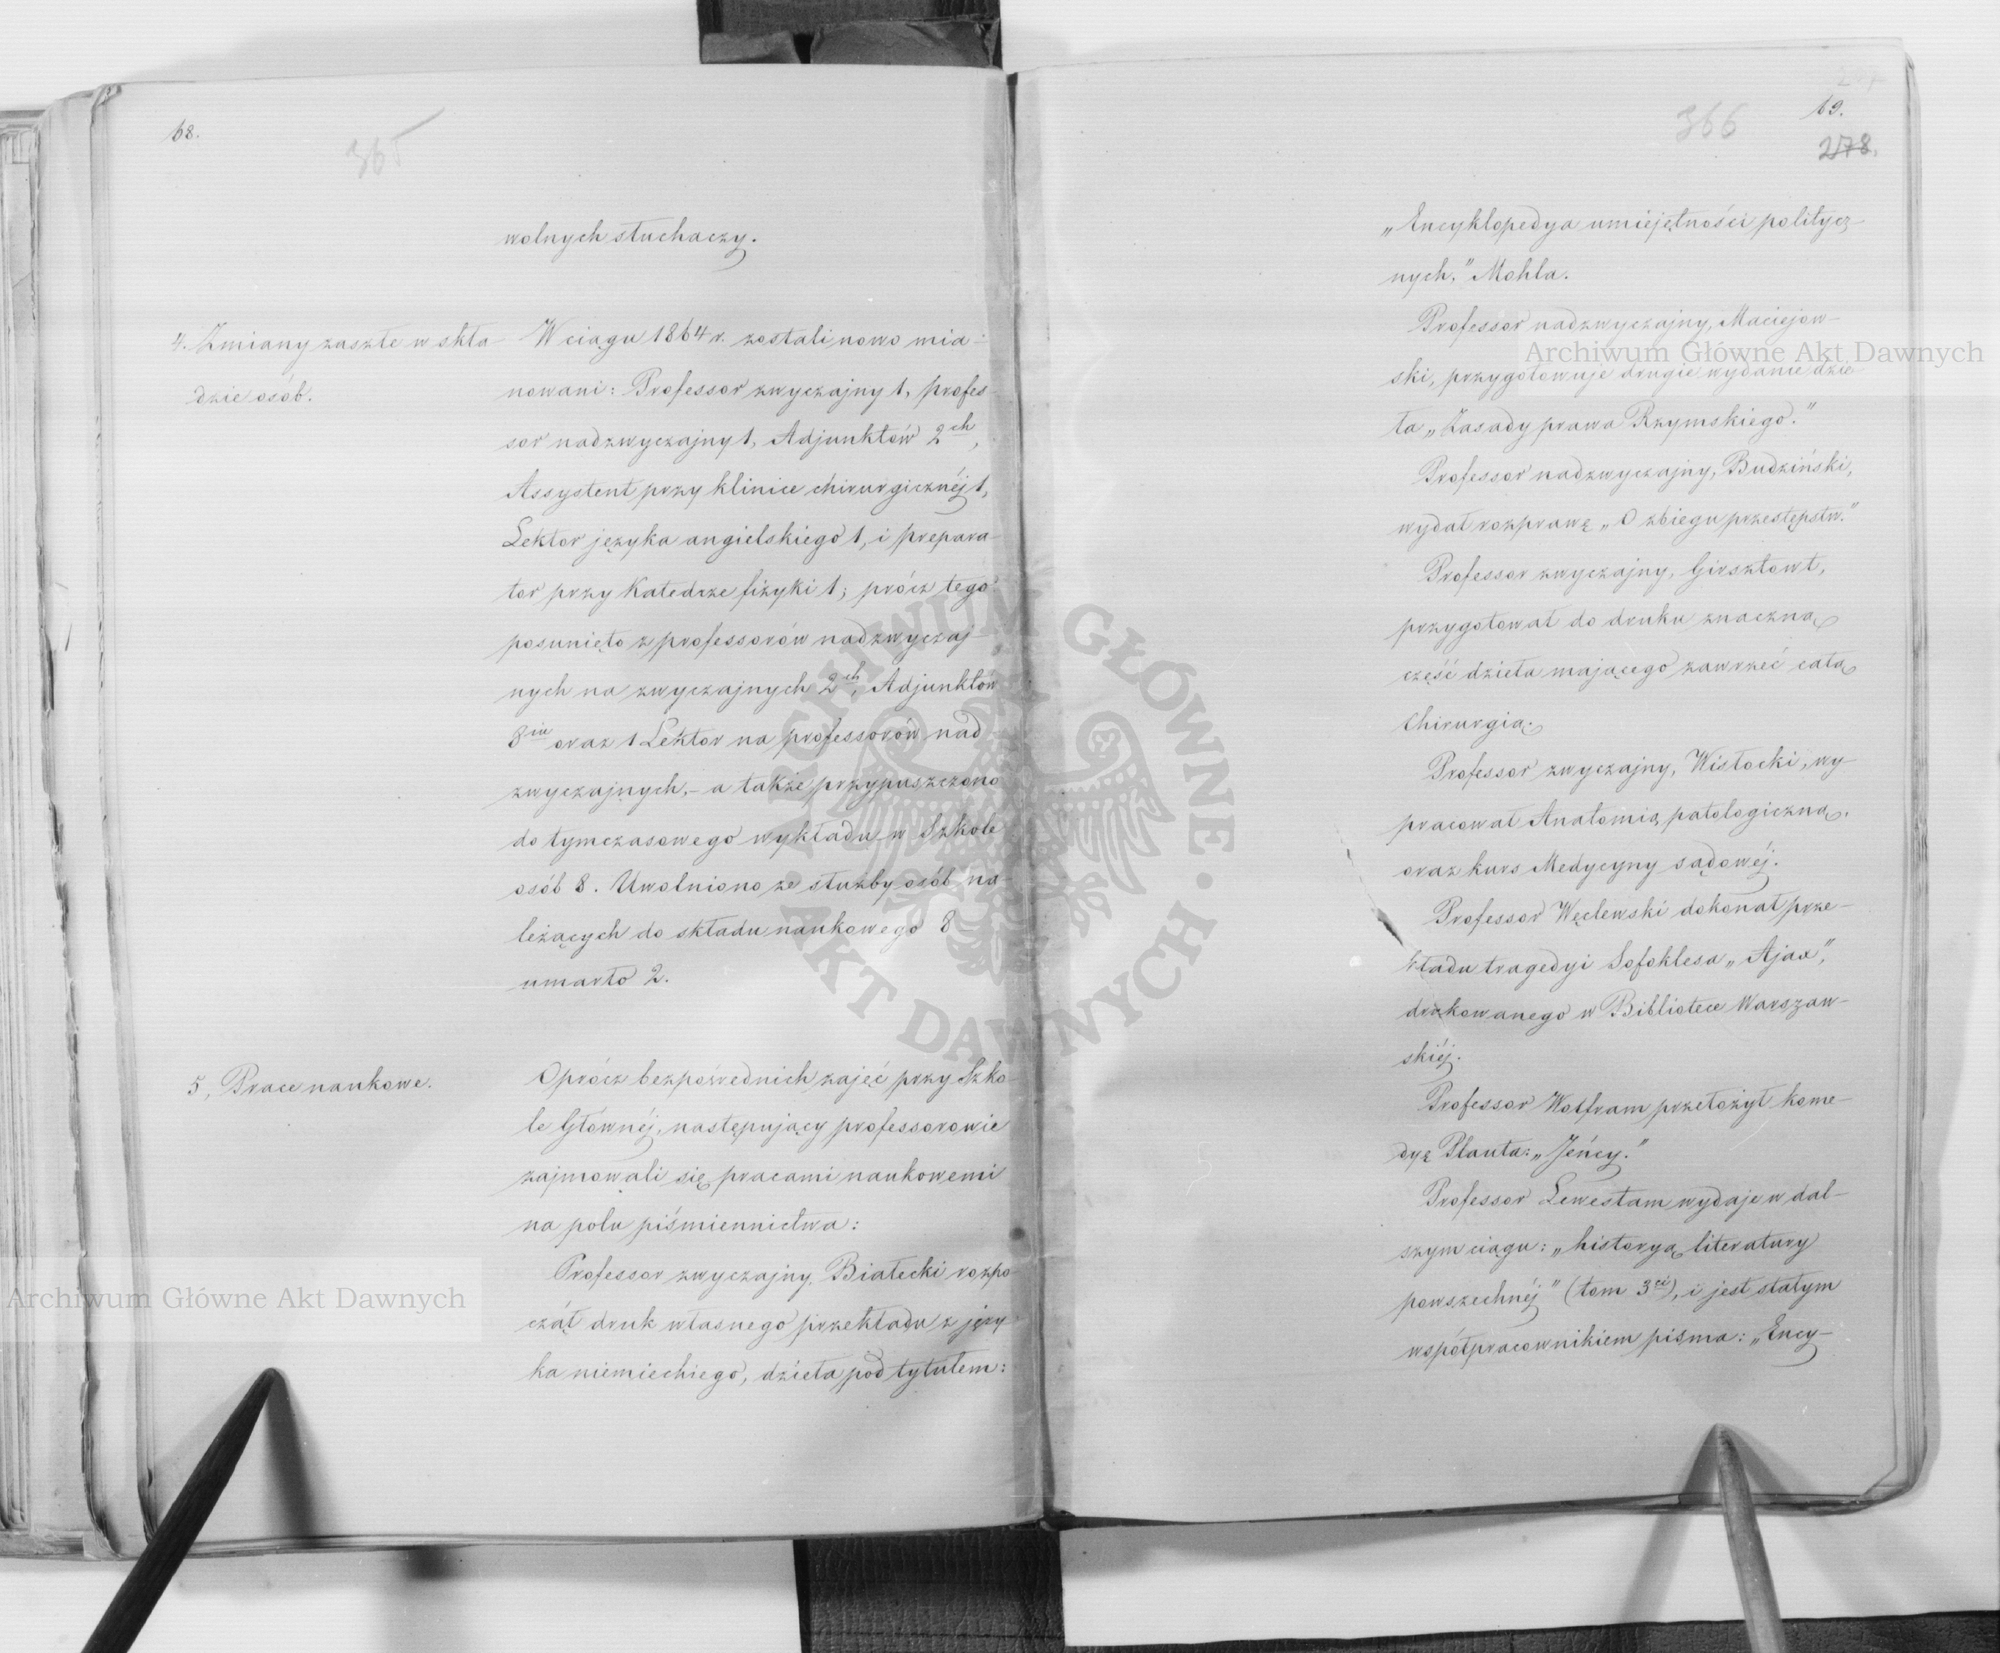 68.
365
wolnych słuchaczy.
4. Zmiany zaszłe w skła-
dzie osób.
W ciągu 1864 r. zostali nowo mia-
nowani: Professor zwyczajny 1, profes-
sor nadzwyczajny 1, Adjunktów 2ch,
Assystent przy klinice chirurgicznéj 1,
Lektor języka angielskiego 1, i prepara-
tor przy Katedrze fizyki 1; prócz tego
posunięto z professorów nadzwyczaj-
nych na zwyczajnych 2ch, Adjunktów
8iu oraz 1 Lektor na professorów nad-
zwyczajnych, - a także przypuszczono
do tymczasowego wykładu w Szkole
osób 8. Uwolniono ze służby osób na-
leżących do składu naukowego 8
umarło 2.
5, Prace naukowe.
Oprócz bezpośrednich zajęć przy Szko-
le Głównéj, następujący professorowie
zajmowali się pracami naukowemi
na polu piśmiennictwa:
Professor zwyczajny, Białecki rozpo-
czął druk własnego przekładu z języ-
ka niemieckiego, dzieła pod tytułem:
366
69.
278.
„Encyklopedya umiejętności politycz-
nych," Mohla.
Professor nadzwyczajny, Maciejow-
ski, przygotowuje drugie wydanie dzie-
ła „Zasady prawa Rzymskiego."
Professor nadzwyczajny, Budziński,
wydał rozprawę „O zbiegu przestępstw."
Professor zwyczajny, Girsztowt,
przygotował do druku znaczną
część dzieła mającego zawrzeć całą
Chirurgią.
Professor zwyczajny, Wisłocki, wy-
pracował Anatomią patologiczną,
oraz kurs Medycyny sądowéj.
Professor Węclewski dokonał prze-
kładu tragedyi Sofoklesa „Ajax",
drukowanego w Bibliotece Warszaw-
skiéj.
Professor Wolfram przełożył kome-
dyę Plauta: „Jeńcy."
Professor Lewestam wydaje w dal-
szym ciągu: „historyą literatury
powszechnéj" (tom 3ci), i jest stałym
współpracownikiem pisma: „Ency-
Archiwum Główne Akt Dawnych
Archiwum Główne Akt Dawnych
ARCHIWUM GŁÓWNE · AKT DAWNYCH ·